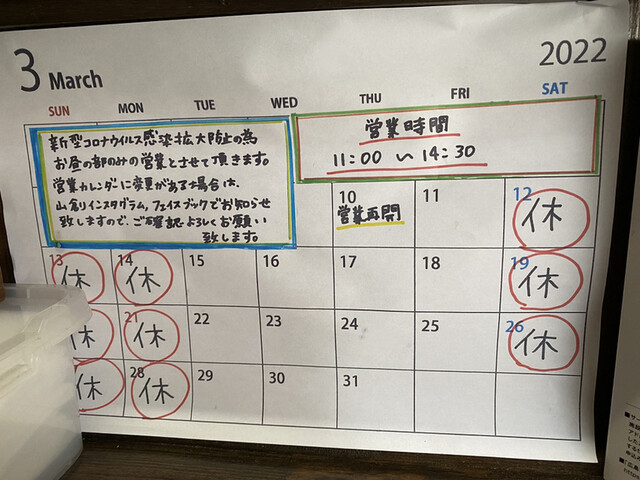 3 March
2022
SUN MON TUE WED THU FRI SAT
新型コロナウイルス感染拡大防止の為
お昼の部のみの営業とさせて頂きます。
営業カレンダーに変更がある場合は、
山創インスタグラム、フェイスブックでお知らせ
致しますので、ご確認よろしくお願い
致します。
営業時間
11:00 〜 14:30
10 11 12
営業再開 休
13 14 15 16 17 18 19
休 休 休
21 22 23 24 25 26
休 休 休
28 29 30 31
休 休